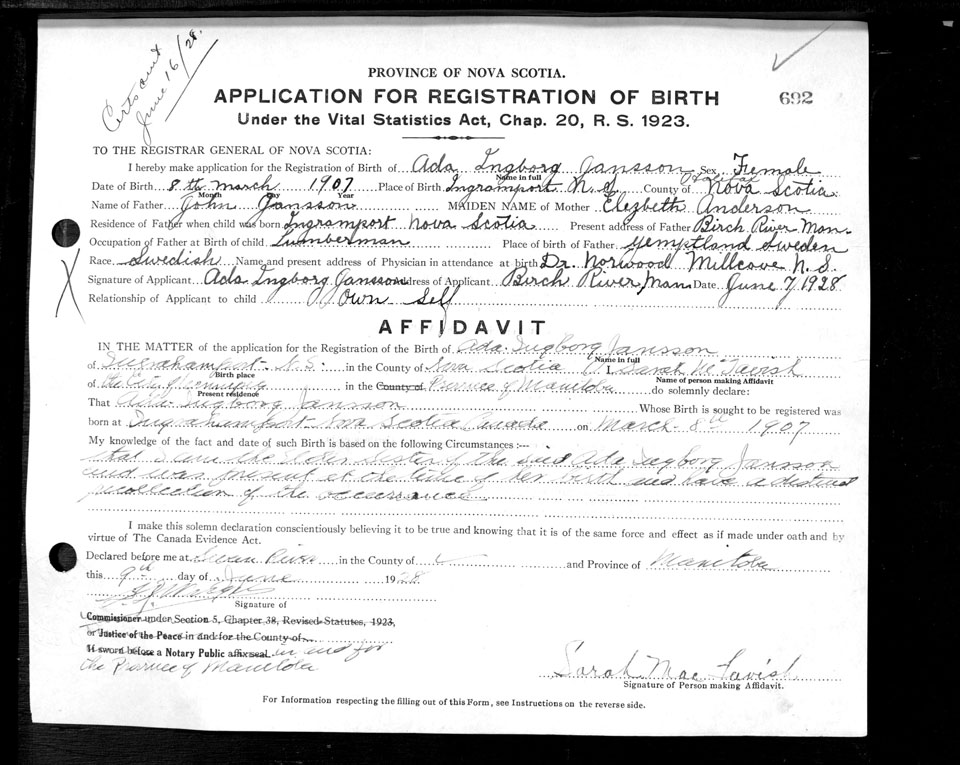 Certs sent
June 16/28.
PROVINCE OF NOVA SCOTIA.
APPLICATION FOR REGISTRATION OF BIRTH
692
Under the Vital Statistics Act, Chap. 20, R. S. 1923.
TO THE REGISTRAR GENERAL OF NOVA SCOTIA:
I hereby make application for the Registration of Birth of Ada Ingborg Jansson Sex Female
Name in full
Halifax
Date of Birth 8th March 1907 Place of Birth Ingramport N.S. County of Nova Scotia
Month Day Year
Name of Father John Jansson MAIDEN NAME of Mother Elezbeth Anderson
Residence of Father when child was born Ingramport Nova Scotia Present address of Father Birch River Man.
Occupation of Father at Birth of child Lumberman Place of birth of Father Yemptland Sweden
Race Swedish Name and present address of Physician in attendance at birth Dr. Norwood Millcove N.S.
Signature of Applicant Ada Ingborg Jansson Address of Applicant Birch River, Man Date June 7, 1928
Relationship of Applicant to child Own Self
AFFIDAVIT
IN THE MATTER of the application for the Registration of the Birth of Ada Ingborg Jansson
Name in full
of N.S. in the County of Nova Scotia I, Sarah McTavish
Birth place Name of person making Affidavit
of the City of Winnipeg in the County of Province of Manitoba do solemnly declare:
Present residence
That Ada Ingborg Jansson Whose Birth is sought to be registered was
born at Nova Scotia Canada on March 8th 1907
My knowledge of the fact and date of such Birth is based on the following Circumstances :—
that I am the Elder Sister of the said Ada Ingborg Jansson
and was present at the time of her birth and have a distinct
recollection of the occurrance
I make this solemn declaration conscientiously believing it to be true and knowing that it is of the same force and effect as if made under oath and by
virtue of The Canada Evidence Act.
Declared before me at Swan River in the County of and Province of Manitoba
this 9th day of June 1928
Signature of
Commissioner under Section 5, Chapter 38, Revised Statutes, 1923,
or Justice of the Peace in and for the County of
If sworn before a Notary Public affix seal in and for
the Province of Manitoba
Sarah MacTavish
Signature of Person making Affidavit.
For Information respecting the filling out of this Form, see Instructions on the reverse side.